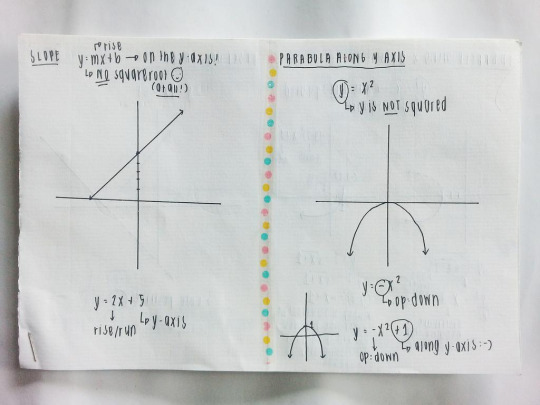 SLOPE
rise
y=mx+b → on the y-axis!
↳ NO squareroot
(at all!)
y = 2x + 5
↓ ↳ y-axis
rise/run
PARABOLA ALONG Y AXIS
y = x²
↳ y is NOT squared
y = -x²
↳ op:down
1
y = -x² + 1
↓ ↳ along y-axis :-)
op:down